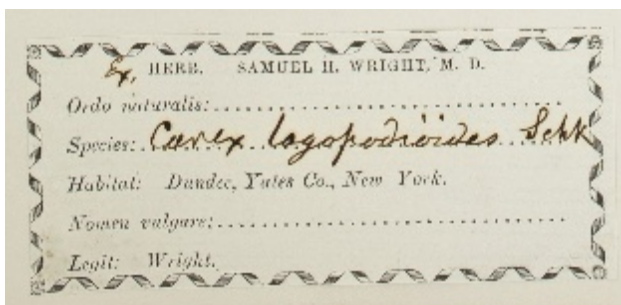 Ex. HERB. SAMUEL H. WRIGHT, M. D.
Ordo naturalis:
Species: Carex lagopodioides Schk
Habitat: Dundee, Yates Co., New York.
Nomen vulgare:
Legit: Wright.